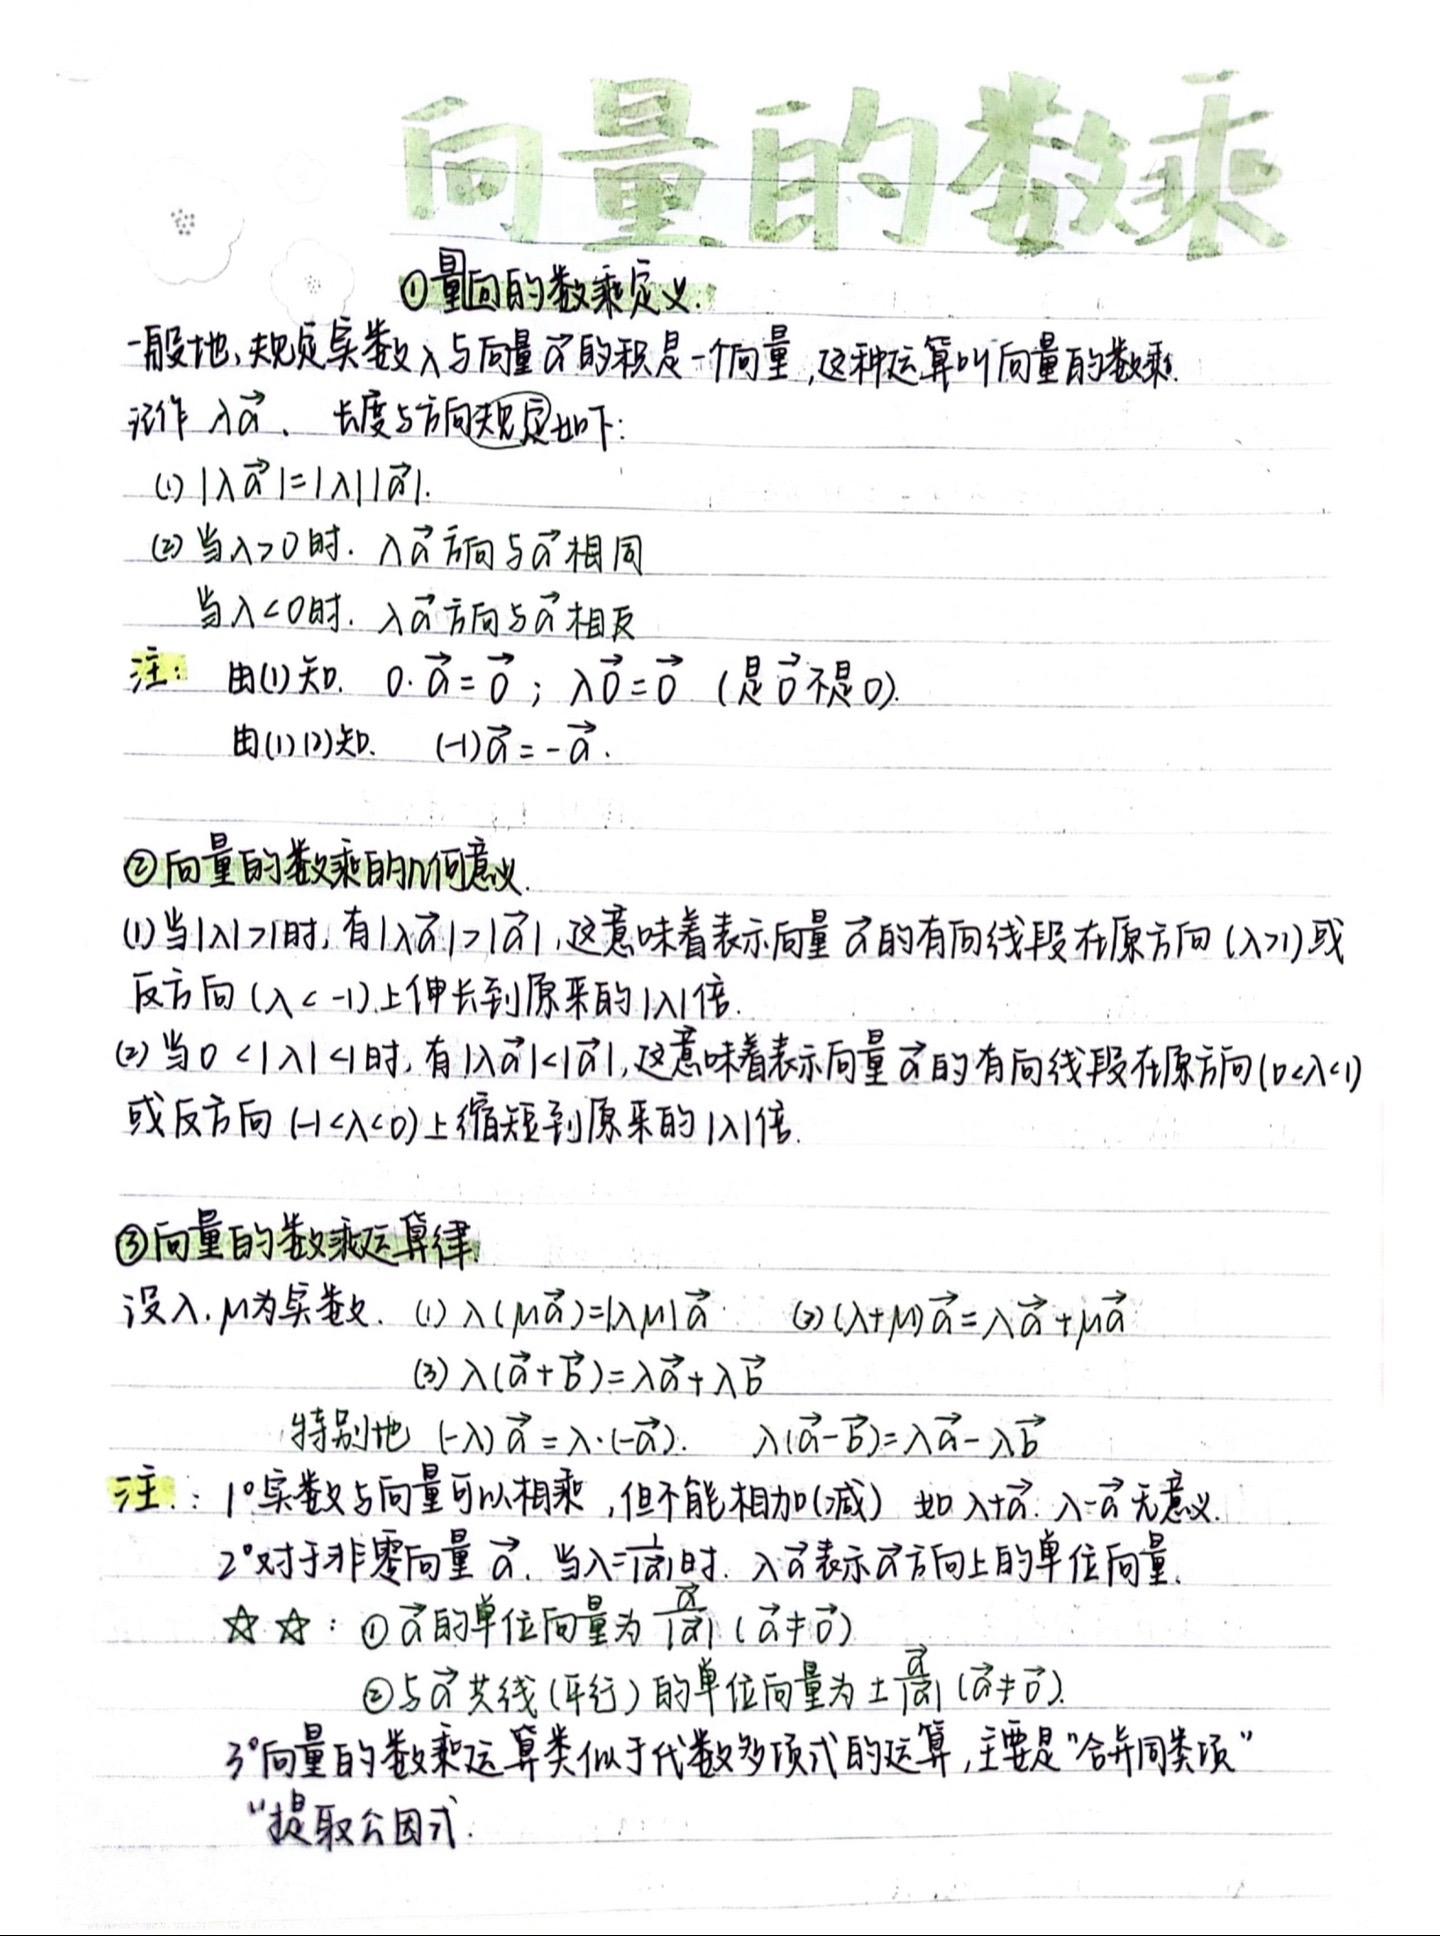 向量的数乘
①量向的数乘定义.
一般地,规定实数λ与向量a⃗的积是一个向量,这种运算叫向量的数乘.
记作 λa⃗. 长度与方向规定如下:
(1) |λa⃗|=|λ||a⃗|.
(2) 当λ>0时. λa⃗方向与a⃗相同
当λ<0时. λa⃗方向与a⃗相反
注: 由(1)知. 0·a⃗=0⃗ ; λ0⃗=0⃗ (是0⃗不是0).
由(1)(2)知. (-1)a⃗=-a⃗.
②向量的数乘的几何意义.
(1)当|λ|>1时,有|λa⃗|>|a⃗|,这意味着表示向量a⃗的有向线段在原方向(λ>1)或
反方向(λ<-1)上伸长到原来的|λ|倍.
(2)当0<|λ|<1时,有|λa⃗|<|a⃗|,这意味着表示向量a⃗的有向线段在原方向(0<λ<1)
或反方向(-1<λ<0)上缩短到原来的|λ|倍.
③向量的数乘运算律.
设λ.μ为实数. (1) λ(μa⃗)=|λμ|a⃗ (2)(λ+μ)a⃗=λa⃗+μa⃗
(3) λ(a⃗+b⃗)=λa⃗+λb⃗
特别地 (-λ)a⃗=λ·(-a⃗). λ(a⃗-b⃗)=λa⃗-λb⃗
注: : 1°实数与向量可以相乘,但不能相加(减) 如λ+a⃗. λ-a⃗无意义.
2°对于非零向量a⃗. 当λ=1/|a⃗|时. λa⃗表示a⃗方向上的单位向量.
☆☆: ①a⃗的单位向量为a⃗/|a⃗| (a⃗≠0⃗)
②与a⃗共线(平行)的单位向量为±a⃗/|a⃗| (a⃗≠0⃗).
3°向量的数乘运算类似于代数多项式的运算,主要是"合并同类项"
"提取公因式.